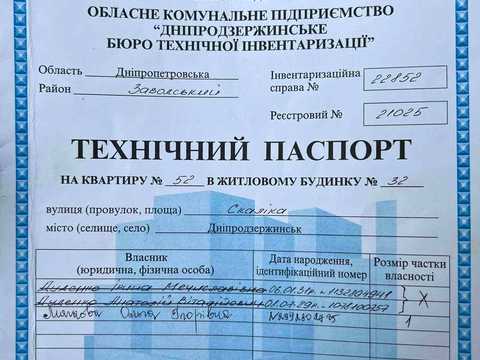 ОБЛАСНЕ КОМУНАЛЬНЕ ПІДПРИЄМСТВО
“ДНІПРОДЗЕРЖИНСЬКЕ
БЮРО ТЕХНІЧНОЇ ІНВЕНТАРИЗАЦІЇ”
Область Дніпропетровська
Район Заводський
Інвентаризаційна
справа № 22852
Реєстровий № 21025
ТЕХНІЧНИЙ ПАСПОРТ
НА КВАРТИРУ № 52 В ЖИТЛОВОМУ БУДИНКУ № 32
вулиця (провулок, площа) Скаліка
місто (селище, село) Дніпродзержинськ
Власник
(юридична, фізична особа)
Дата народження,
ідентифікаційний номер
Розмір частки
власності
Ольга Ігорівна 1